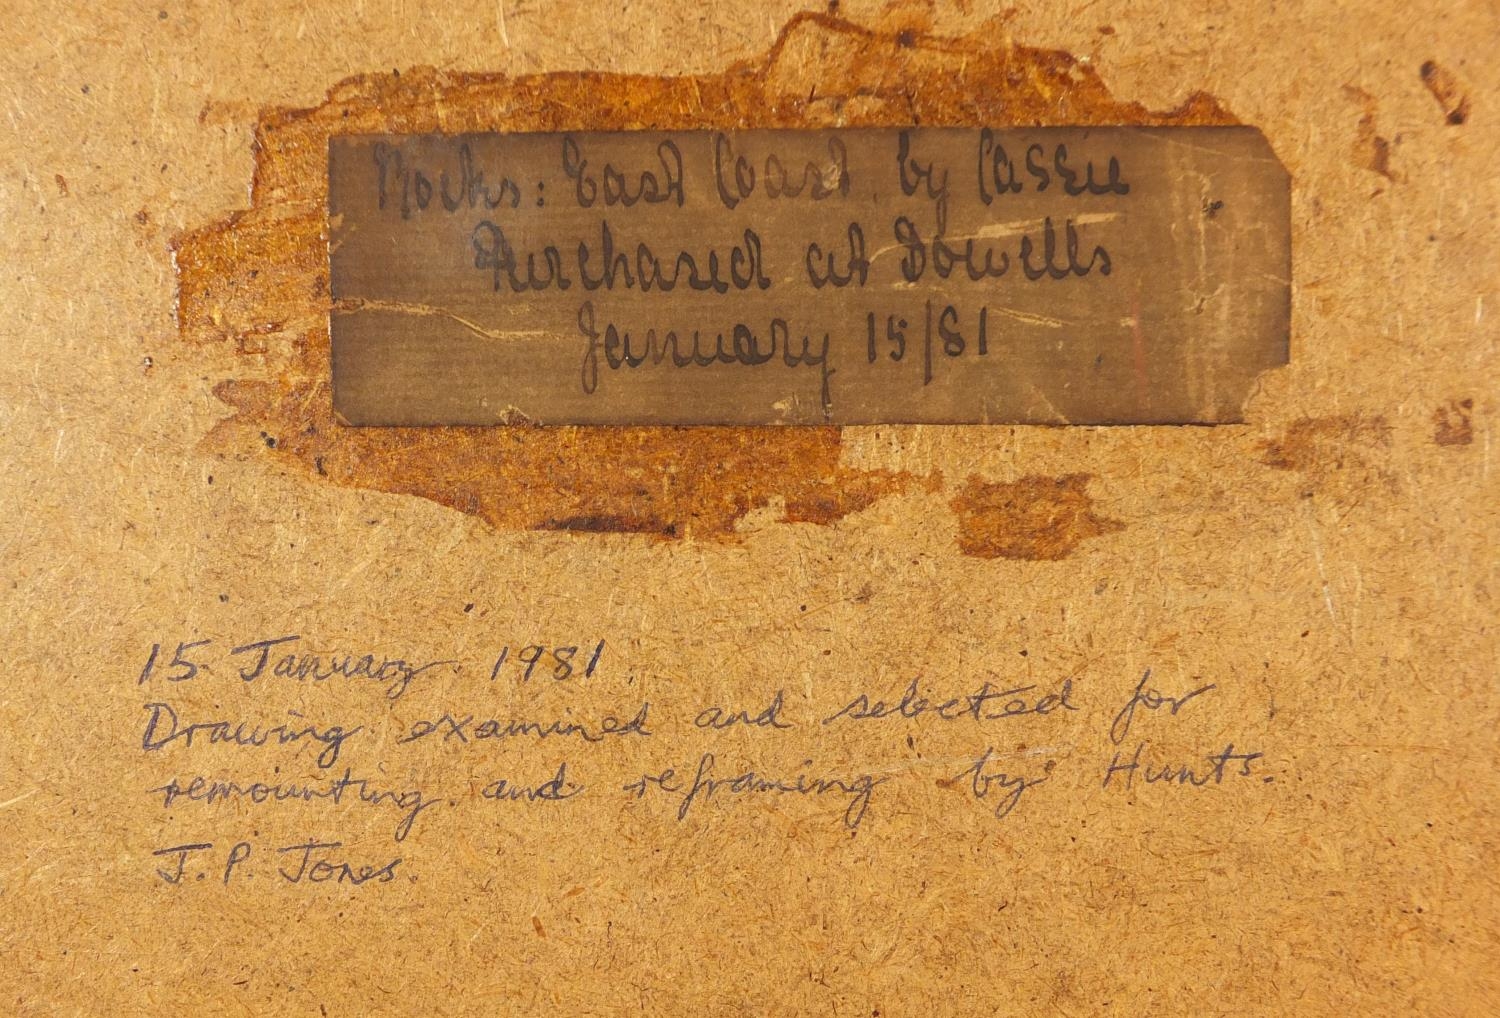 Rocks: East Coast. by Cassie
Purchased at Dowells
January 15/81
15 January 1981.
Drawing examined and selected for
remounting and reframing by Hunts.
J. P. Jones.